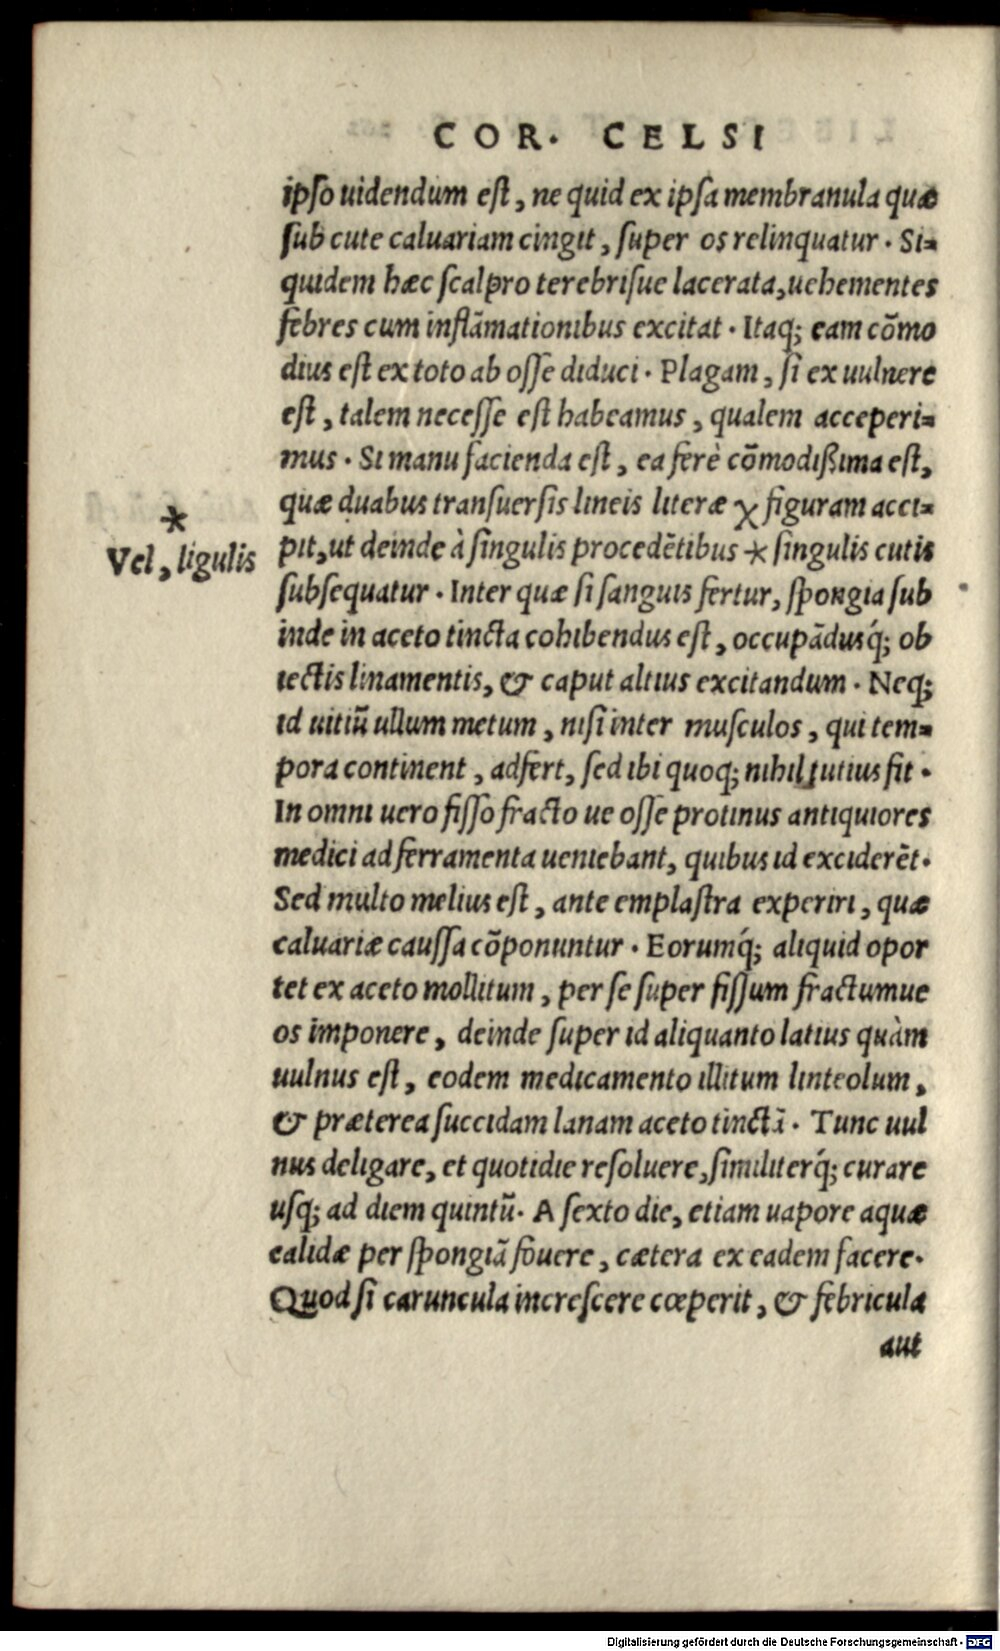 COR. CELSI
ipso uidendum est, ne quid ex ipsa membranula quæ
sub cute caluariam cingit, super os relinquatur. Si=
quidem hæc scalpro terebrisue lacerata, uehementes
febres cum inflāmationibus excitat. Itaq; eam cōmo
dius est ex toto ab osse diduci. Plagam, si ex uulnere
est, talem necesse est habeamus, qualem acceperi=
mus. Si manu facienda est, ea ferè cōmodißima est,
quæ duabus transuersis lineis literæ χ figuram acci=
pit, ut deinde à singulis procedētibus * singulis cutis
subsequatur. Inter quæ si sanguis fertur, spongia sub
inde in aceto tincta cohibendus est, occupādusq́; ob
iectis linamentis, & caput altius excitandum. Neq;
id uitiū ullum metum, nisi inter musculos, qui tem=
pora continent, adfert, sed ibi quoq; nihil tutius fit.
In omni uero fisso fracto ue osse protinus antiquiores
medici ad ferramenta ueniebant, quibus id exciderēt.
Sed multo melius est, ante emplastra experiri, quæ
caluariæ caussa cōponuntur. Eorumq́; aliquid opor
tet ex aceto mollitum, per se super fissum fractumue
os imponere, deinde super id aliquanto latius quàm
uulnus est, eodem medicamento illitum linteolum,
& præterea succidam lanam aceto tinctā. Tunc uul
nus deligare, et quotidie resoluere, similiterq́; curare
usq; ad diem quintū. A sexto die, etiam uapore aquæ
calidæ per spongiā fouere, cætera ex eadem facere.
Quod si caruncula increscere cœperit, & febricula
aut
*
Vel, ligulis
Digitalisierung gefördert durch die Deutsche Forschungsgemeinschaft - DFG